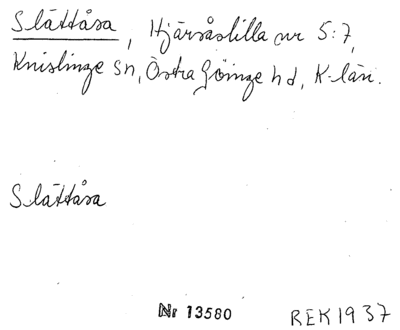 Slättåsa, Hjärsåslilla nr 5:7,
Knislinge sn, Östra Göinge hd, K-län.
Slättåsa
Nr 13580 REK1937